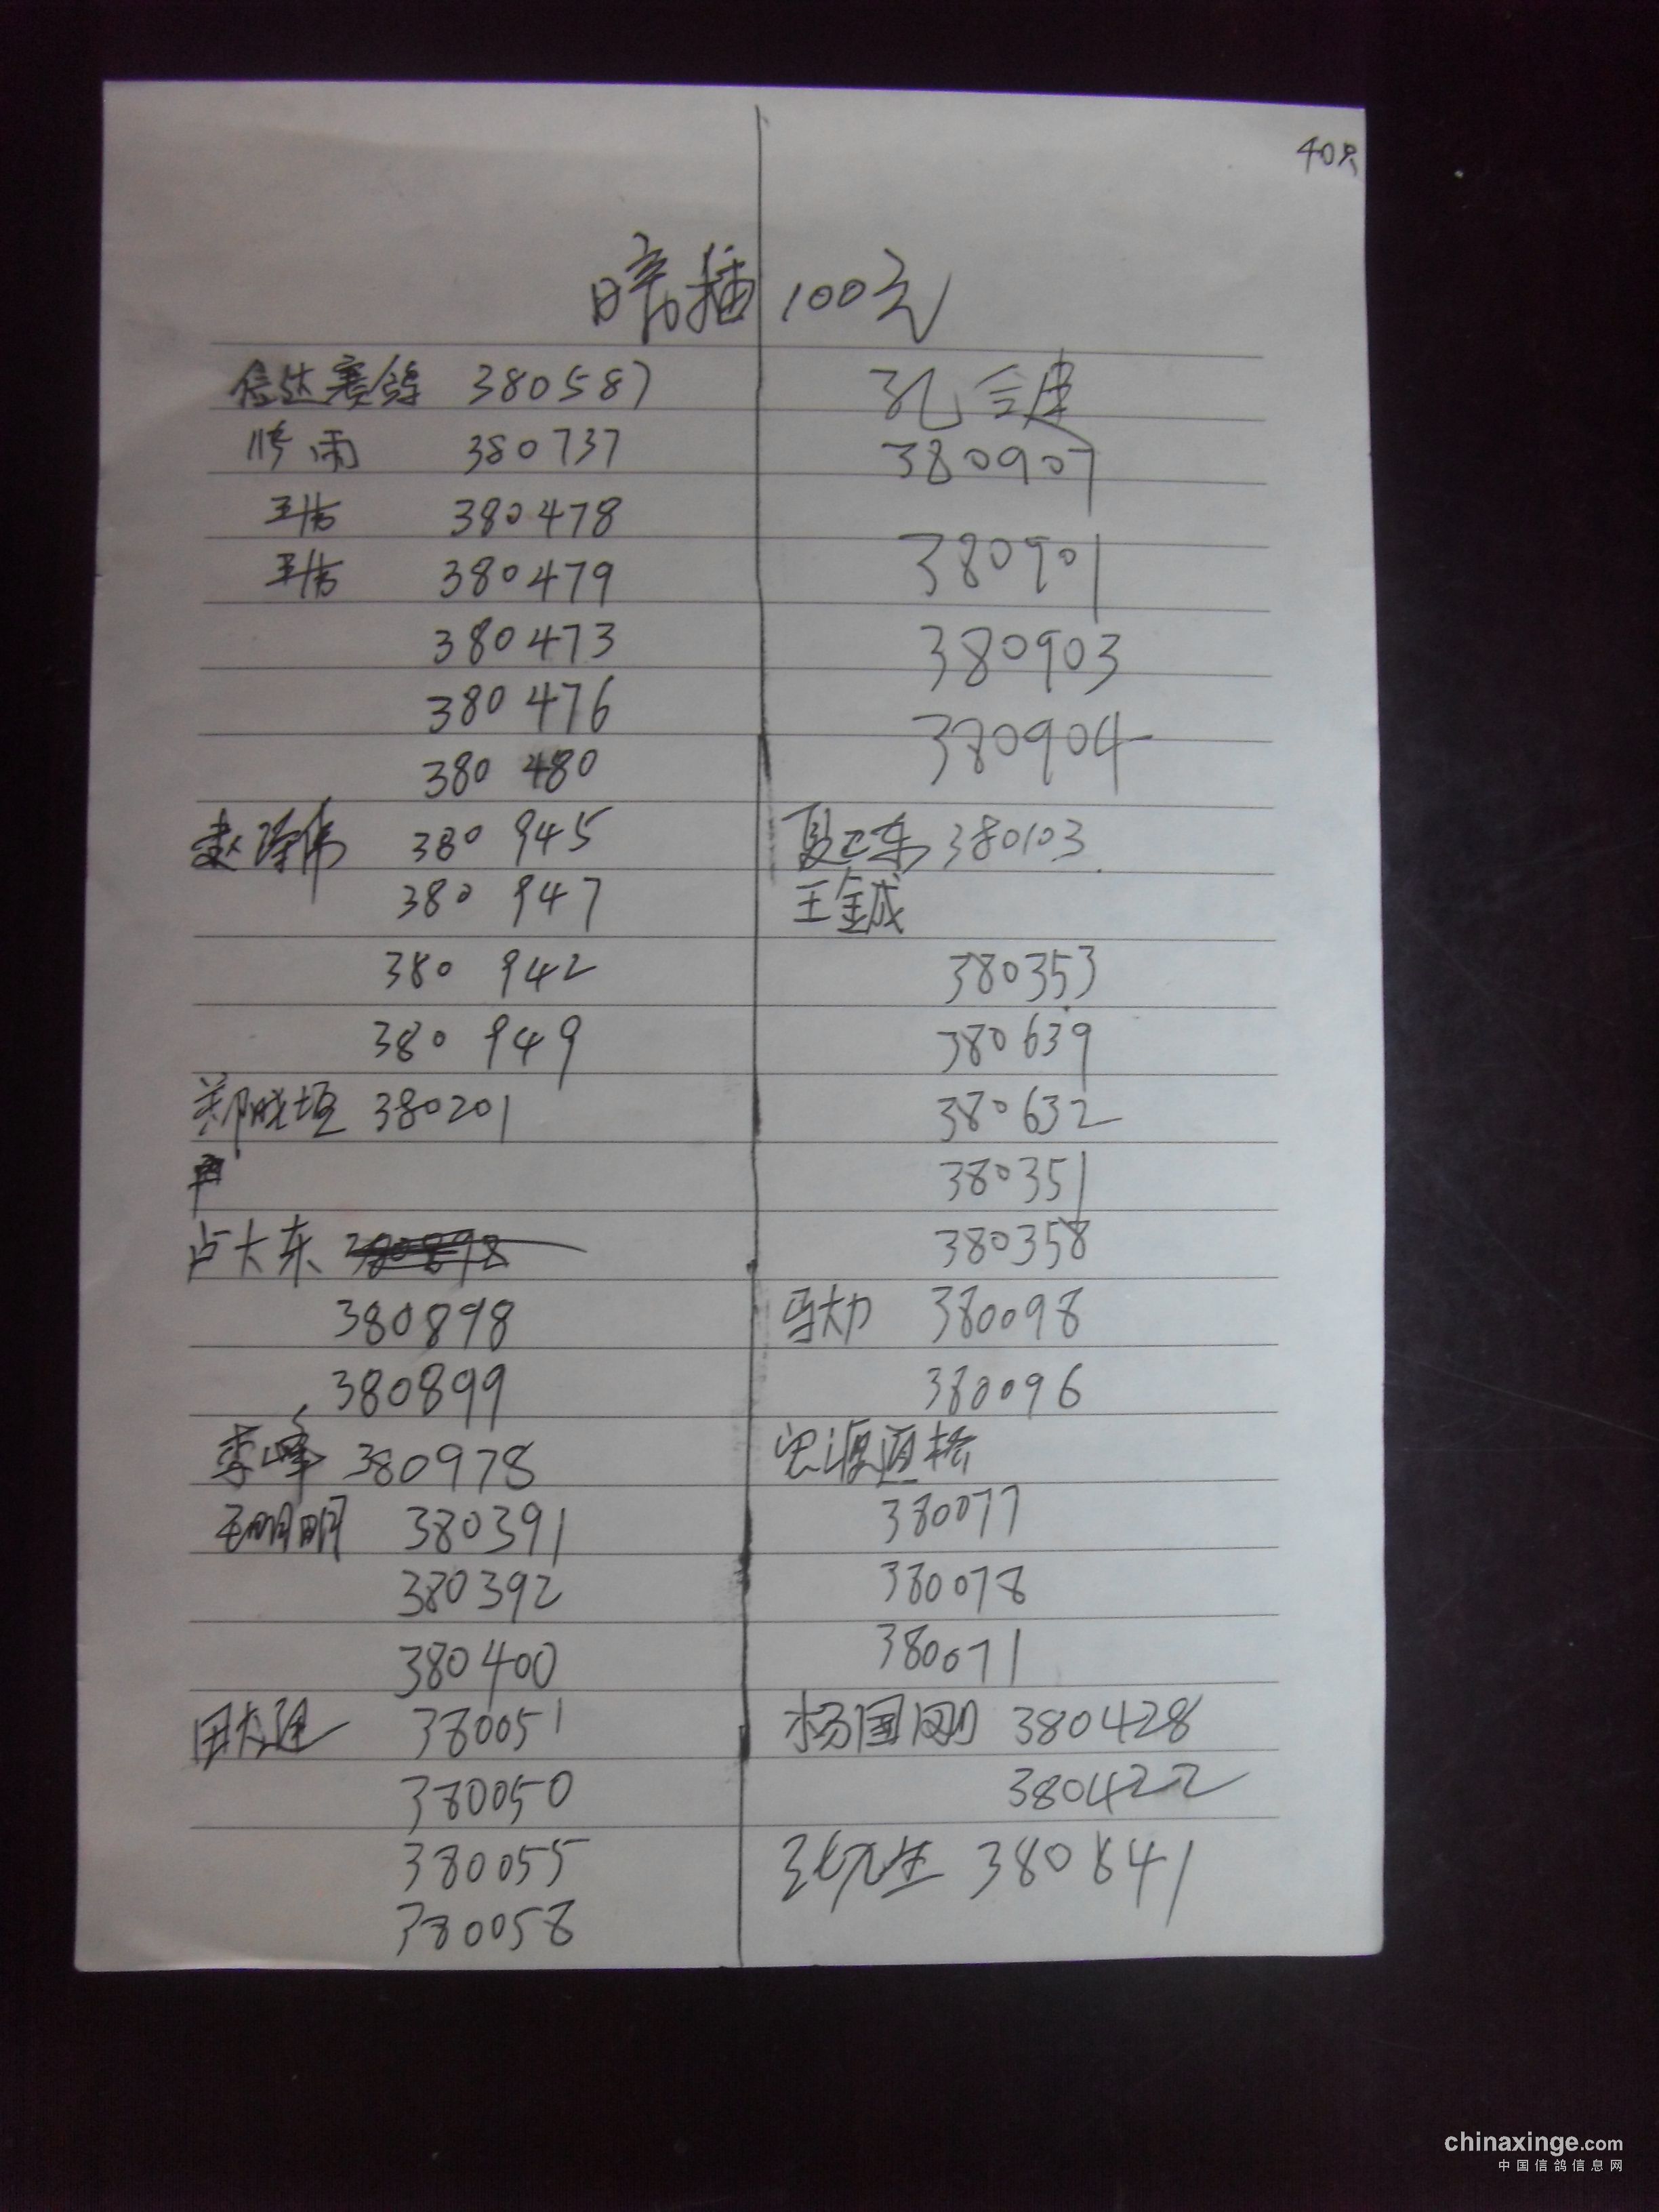 40只
暗插 100元
信达赛鸽 380587
修雨 380737
王伟 380478
王伟 380479
380473
380476
380480
赵泽伟 380 945
380 947
380 942
380 949
郑晓垣 380201
卢大东
380898
380899
李峰 380978
王明明 380391
380392
380400
田大进 380051
380050
380055
380058
孔令建
380907
380901
380903
380904
380103
王金城
380353
380639
380632
380351
380358
马大力 380098
380096
380077
380078
380071
杨国刚 380428
380422
张先生 380841
chinaxinge.com
中国信鸽信息网